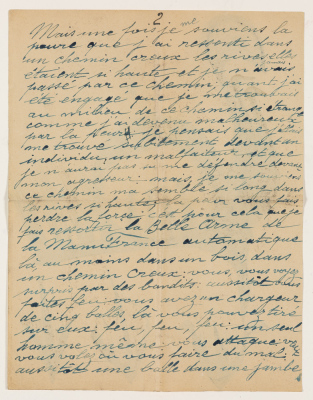 2
Mais une fois je me souviens la
peure que j'ai ressentu dans
un chemin creux les rives elles
étaient si haute et je n'avais
passé par ce chemin, quant j'ai
été engagé que je me trouvais
au milieu de ce chemin si étrange
comme j'ai devenu malheureute
par la peure je pensais que j'allais
me trouvé subitement devant un
individu, un malfaiteur, et que
je n'aurai pas pu me défendre devant
mon agresseur: mais, je me souviens
ce chemin ma semblé si long dans
les rives si hautes la peur vous fais
perdre la force c'est pour cela que je
fais ressortir la Belle Arme de
la Manufrance automatique
là au moins dans un bois, dans
un chemin creux: vous, vous voyez
surpris par des bandits: aussitôt vous
faites feu: vous avez un chargeur
de cinq balles là vous pouvez tiré
sur eux: feu, feu, feu: un seul
homme même: vous attaque
vous volez où vous faire du mal:
aussitôt une balle dans une jambe